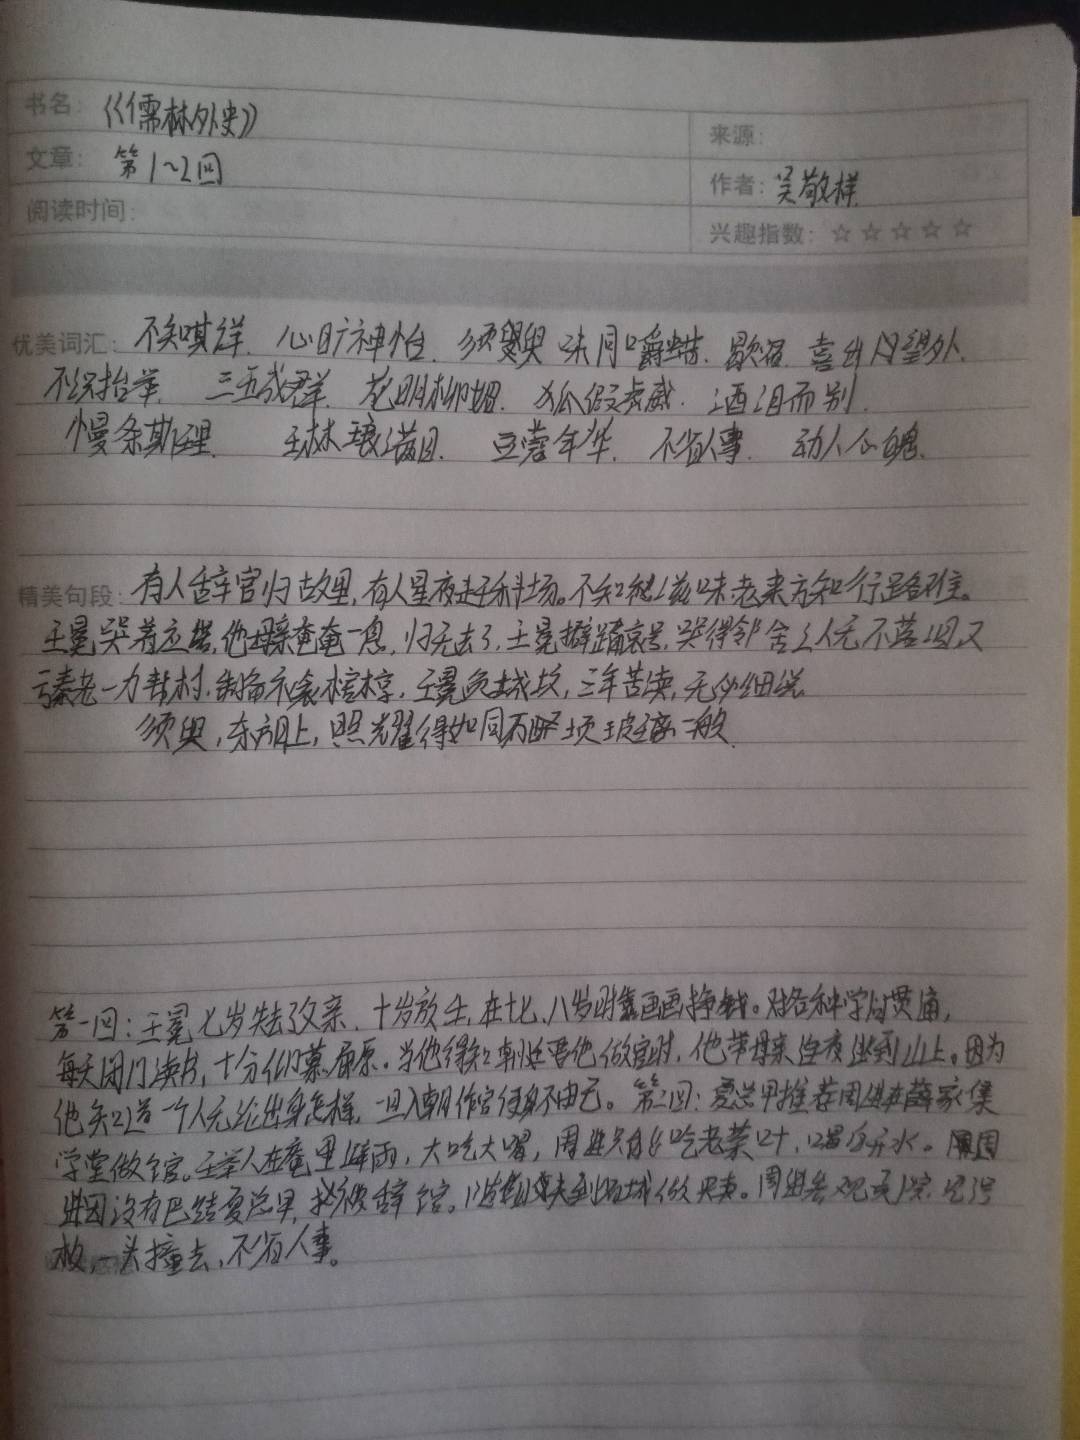 书名：《儒林外史》
来源：
文章：第1~2回
作者：吴敬梓
阅读时间：
兴趣指数：☆☆☆☆☆
优美词汇：不知啖详、心旷神怡、须臾 味同嚼蜡、歇宿、喜出望外、
不识抬举、三五成群、花明柳媚、狐假虎威、洒泪而别、
慢条斯理、琳琅满目、豆蔻年华、不省人事、动人心魄、
精美句段：有人辞官归故里，有人星夜赶科场。不知滋味老来方知行路难。
王冕哭着应诺，他母亲奄奄一息，归天去了，王冕擗踊哀号，哭得邻舍之人无不落泪又
亏秦老一力帮村，制备衣衾棺椁，王冕负土成坟，三年苦读，无必细说
须臾，东方月上，照耀得如同万顷玻璃一般
第一回：王冕七岁失去了父亲、十岁放牛，在十七、八岁时靠画画挣钱。对各种学问贯通，
每天闭门读书，十分仰慕屈原。当他得知朝廷要他做官时，他带母亲连夜逃到山上。因为
他知道一个人无论出身怎样，一旦入朝作官便身不由己。第二回：夏总甲推荐周进在薛家集
学堂做馆。王举人在庵里避雨，大吃大喝，周进只有吃老菜叶，喝白开水。周
进因没有巴结夏总甲，被辞馆。随姐丈到省城做买卖。周进参观贡院 见号
板，一头撞去，不省人事。